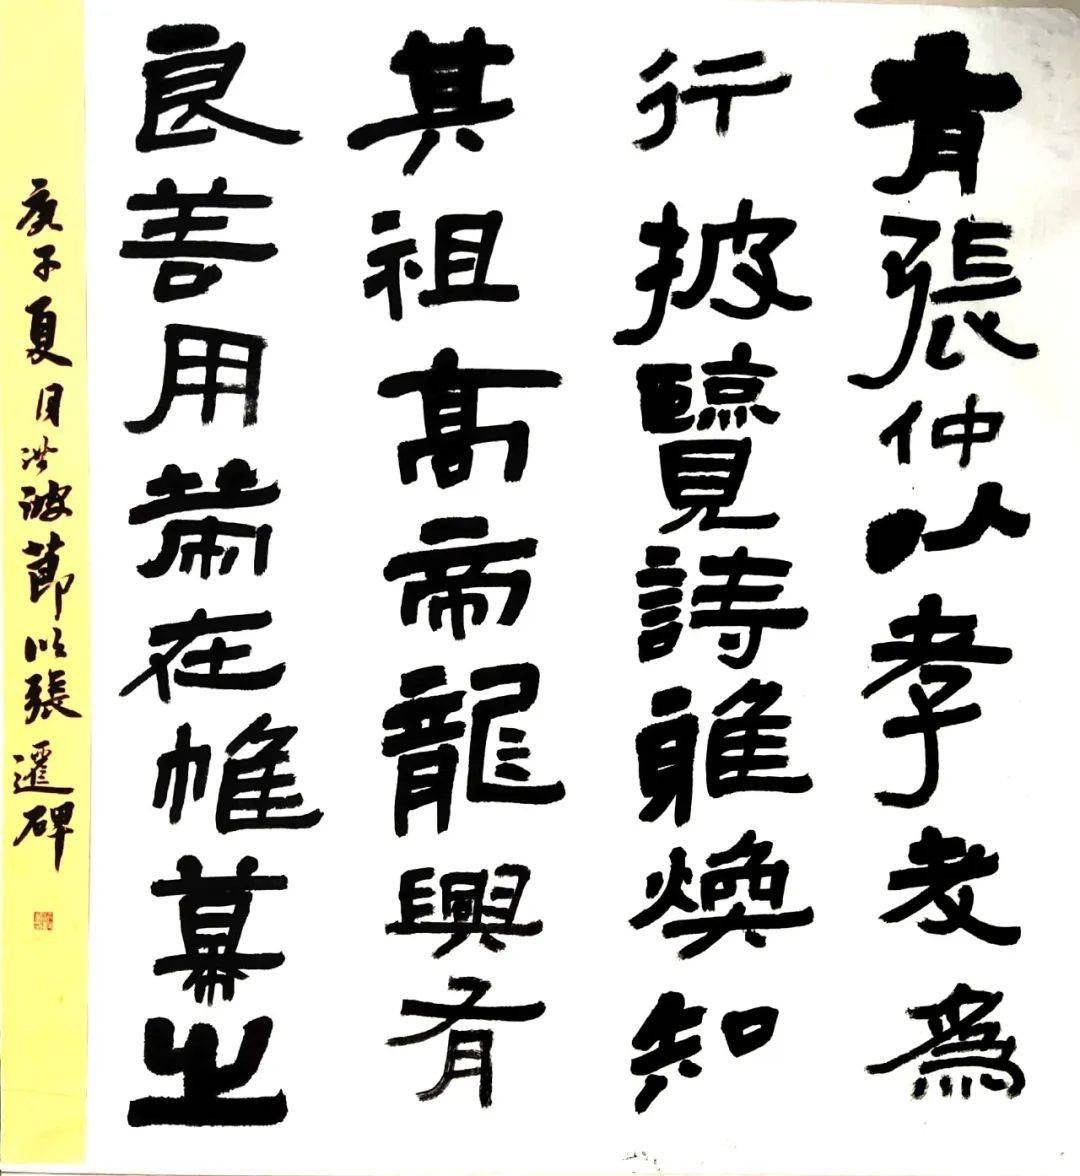 有張仲以孝友為
行披覽詩雅煥知
其祖高帝龍興有
良善用策在帷幕之
庚子夏月洪波節以張遷碑